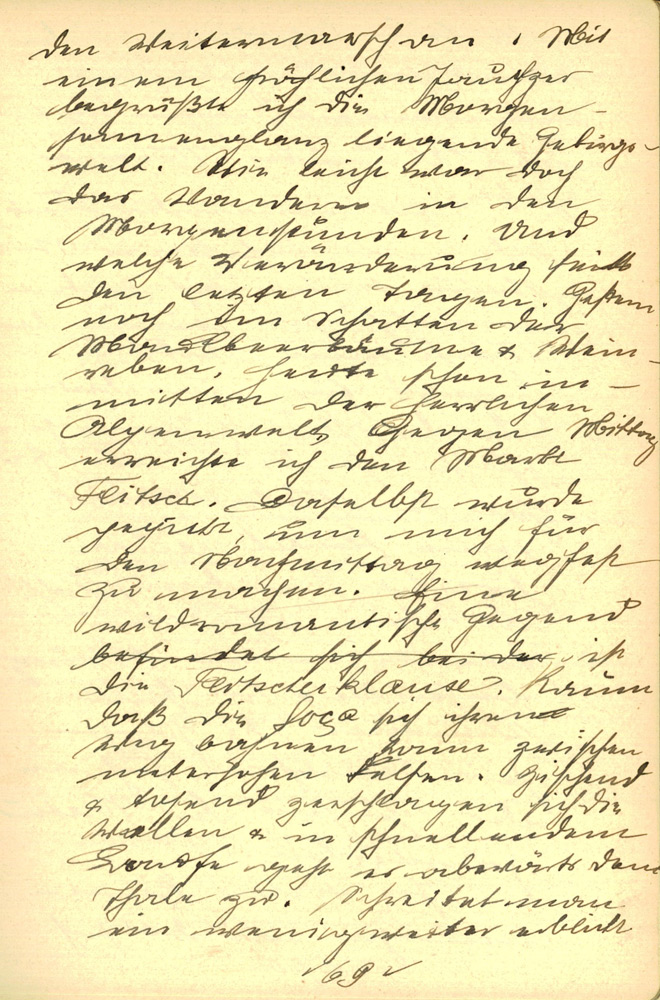 den Weitermarsch an. Mit
einem fröhlichen Jauchzer
begrüßte ich die Morgen-
sonnenglanz liegende Gebirgs-
welt. Wie leicht war doch
das Wandern in den
Morgenstunden. Und
welche Veränderung seit
den letzten Tagen. Gestern
noch im Schatten der
Maulbeerbäume & Wein-
reben, heute schon in-
mitten der herrlichen
Alpenwelt. Gegen Mittag
erreichte ich den Markt
Flitsch. Daselbst wurde
, um mich für
den Nachmittag wegfest
zu machen. Eine
wildromantische Gegend
befindet sich bei der ist
die Flitscherklause. Kaum
daß die Soča sich ihren
Weg bahnen kann zwischen
meterhohen Felsen. Zischend
& tosend zerschlagen sich die
Wellen & in schnellendem
Laufe geht es abwärts dem
Thale zu. Schreitet man
ein wenig weiter erblickt
69